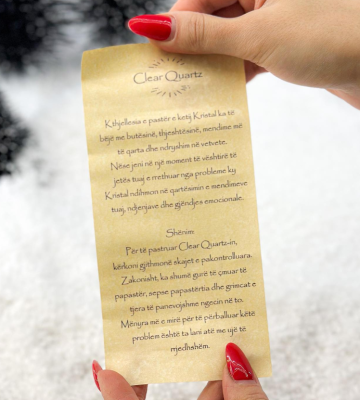 Clear Quartz
Kthjellësia e pastër e ketij Kristal ka të
bëjë me butësinë, thjeshtësinë, mendime më
të qarta dhe ndryshim në vetvete.
Nëse jeni në një moment të vështirë të
jetës tuaj e rrethuar nga probleme ky
Kristal ndihmon në qartësimin e mendimeve
tuaj, ndjenjave dhe gjëndjes emocionale.
Shënim:
Për të pastruar Clear Quartz-in,
kërkoni gjithmonë skajet e pakontrolluara.
Zakonisht, ka shumë gurë të çmuar të
papastër, sepse papastërtia dhe grimcat e
tjera të panevojshme ngecin në to.
Mënyra më e mirë për të përballuar këtë
problem është ta lani atë me ujë të
rrjedhshëm.